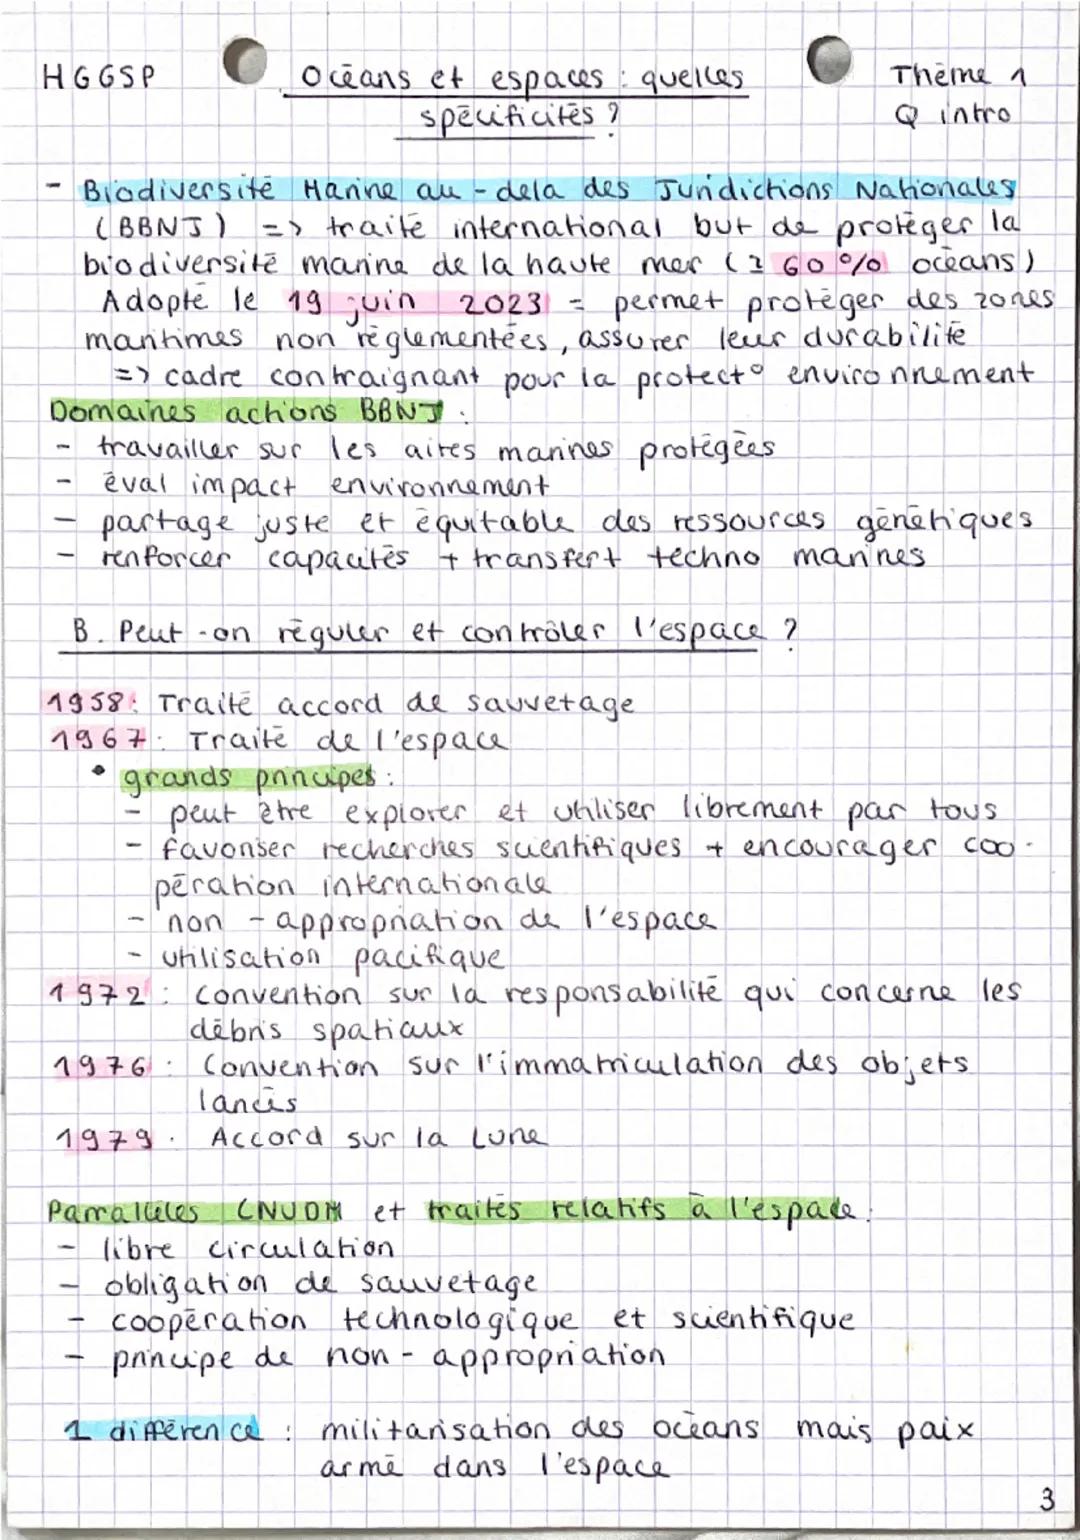 HGGSP
Océans et espaces : quelles
spécificités ?
Thème 1
Q intro
- Biodiversité Marine au-dela des Juridictions Nationales
(BBNJ) => traité international but de protéger la
biodiversité marine de la haute mer ( 60 % océans)
Adopté le 19 juin 2023 = permet protéger des zones
maritimes non réglementées, assurer leur durabilité
=> cadre contraignant pour la protect° environnement
Domaines actions BBNJ :
- travailler sur les aires marines protégées
- éval impact environnement
- partage juste et équitable des ressources génétiques
- renforcer capacités + transfert techno marines
B. Peut-on réguler et contrôler l'espace ?
1958: Traité accord de sauvetage
1967: Traité de l'espace
• grands principes :
- peut être explorer et utiliser librement par tous
- favoriser recherches scientifiques + encourager coo-
pération internationale
- non-appropriation de l'espace
- utilisation pacifique
1972 : Convention sur la responsabilité qui concerne les
débris spatiaux
1976 : Convention sur l'immatriculation des objets
lancés
1979. Accord sur la Lune
Parralléles CNUDM et traités relatifs à l'espace :
- libre circulation
- obligation de sauvetage
- coopération technologique et scientifique
- principe de non-appropriation
1 différence : militarisation des océans mais paix
armé dans l'espace
3